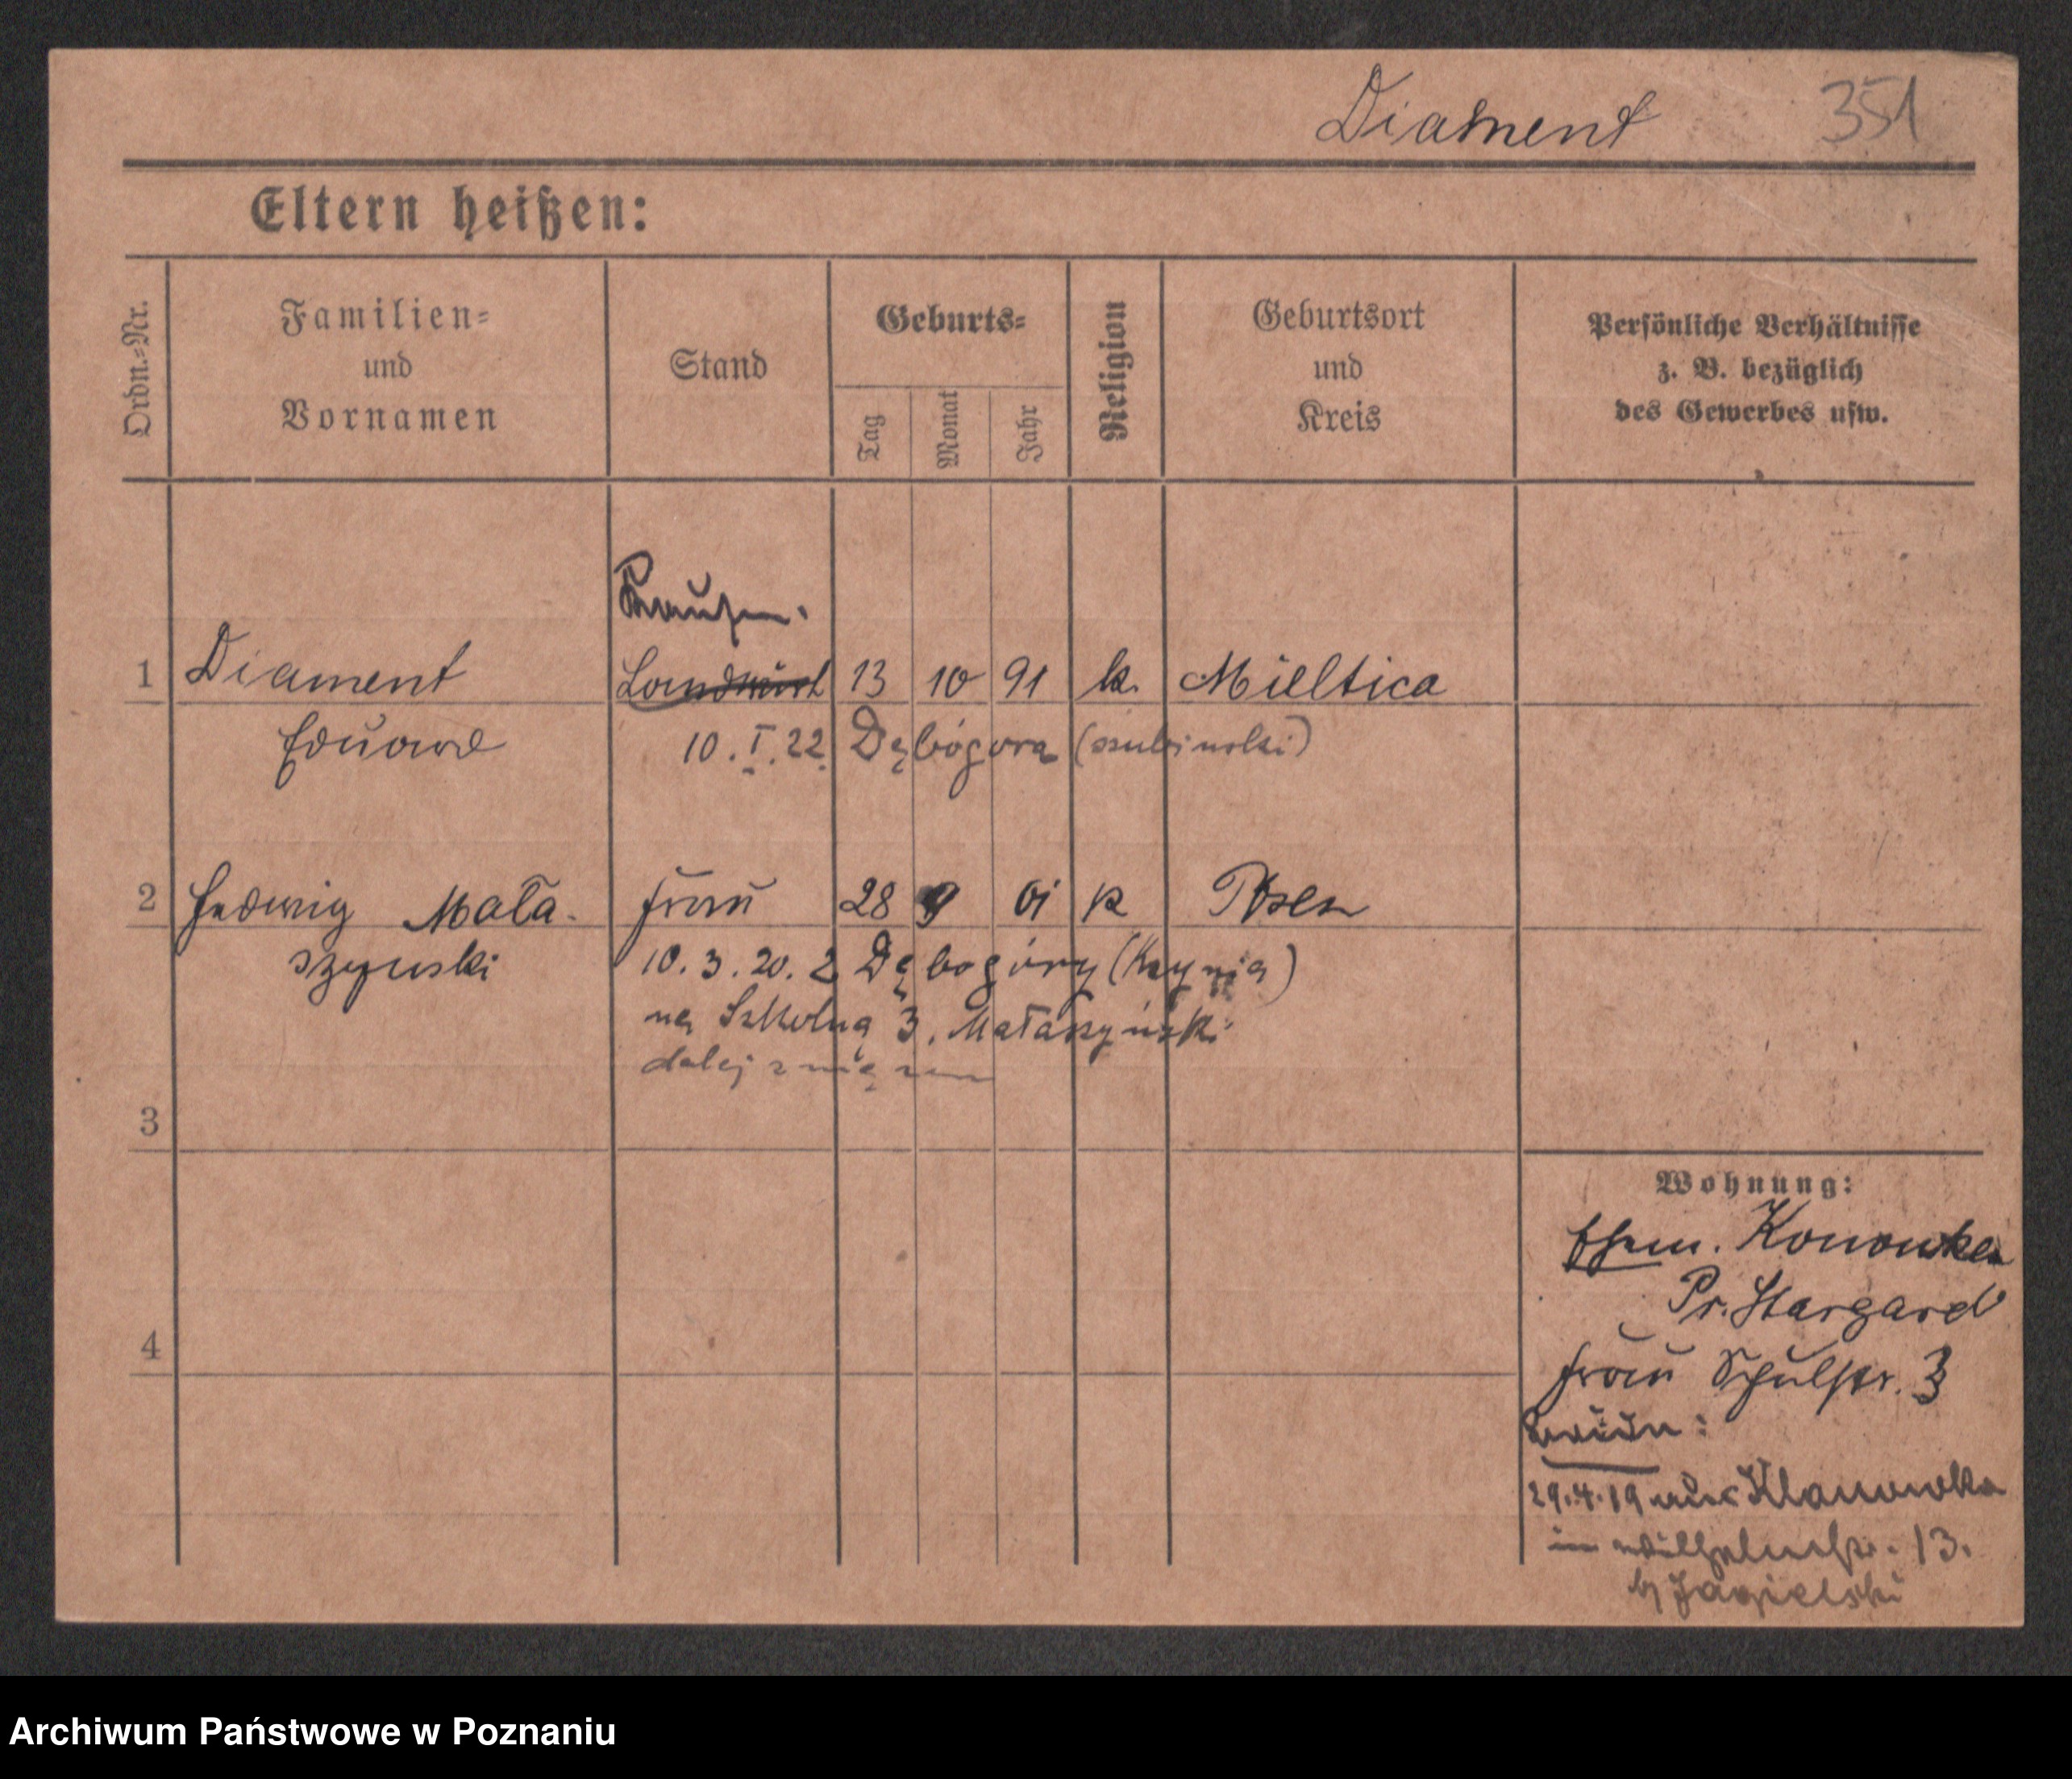 Diament 351
Eltern heißen:
Ordn.=Nr.
Familien=
und
Vornamen
Stand
Geburts=
Tag
Monat
Jahr
Religion
Geburtsort
und
Kreis
Persönliche Verhältnisse
z. B. bezüglich
des Gewerbes usw.
1 Diament Landwirt 13 10 91 k. Mieltica
Eduard 10. I. 22 Dębógora (szubinski)
2 Hedwig Mała- Frau 28 9 01 k Posen
szynski 10. 3. 20. z Dębogóry (Kcynia)
na Szkolna 3. Małaszyński
dalej z mężem
3
Wohnung:
Ehem. Konowken
Pr. Stargard
4
Frau Schulstr. 3
29.4.19 aus
in Wilhelmstr. 13.
b/ Jagielski
Archiwum Państwowe w Poznaniu